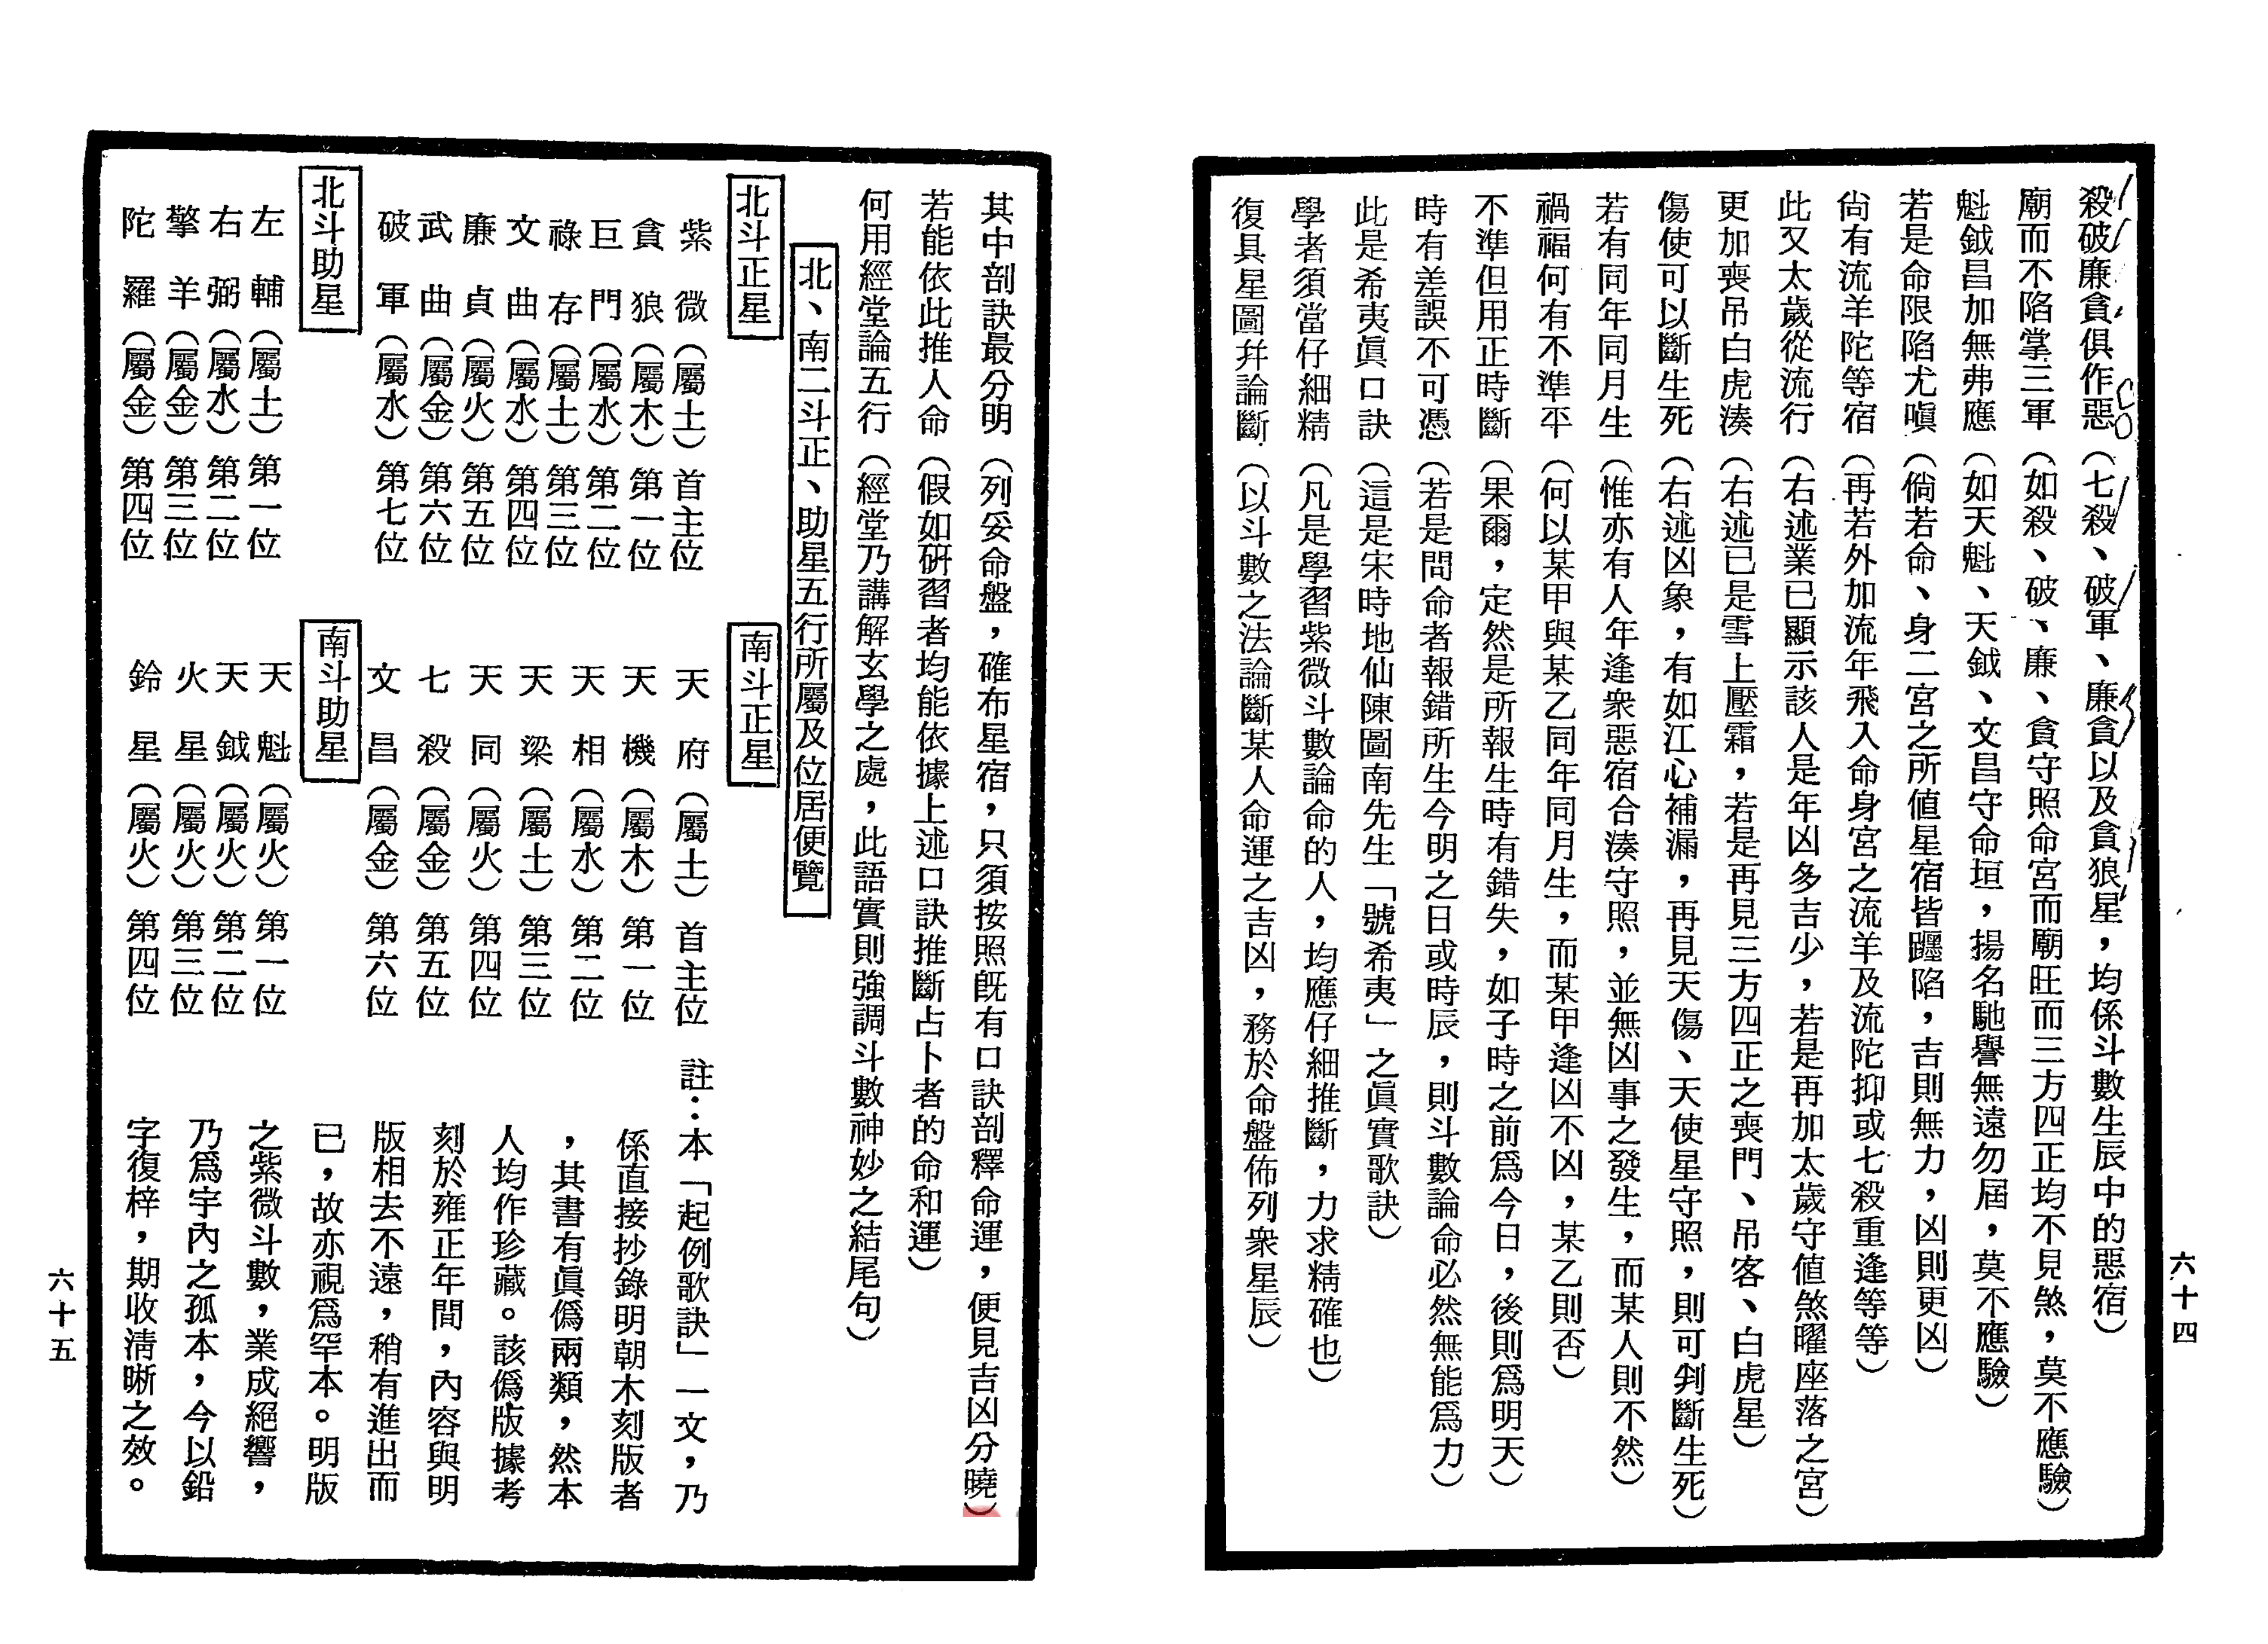 殺破廉貪俱作惡（七殺、破軍、廉貪以及貪狼星，均係斗數生辰中的惡宿）
廟而不陷掌三軍（如殺、破、廉、貪守照命宮而廟旺而三方四正均不見煞，莫不應驗）
魁鉞昌加無弗應（如天魁、天鉞、文昌守命垣，揚名馳譽無遠勿屆，莫不應驗）
若是命限陷尤嗔（倘若命、身二宮之所值星宿皆躔陷，吉則無力，凶則更凶）
尙有流羊陀等宿（再若外加流年飛入命身宮之流羊及流陀抑或七殺重逢等等）
此又太歲從流行（右述業已顯示該人是年凶多吉少，若是再加太歲守値煞曜座落之宮）
更加喪吊白虎湊（右述已是雪上壓霜，若是再見三方四正之喪門、吊客、白虎星）
傷使可以斷生死（右述凶象，有如江心補漏，再見天傷、天使星守照，則可判斷生死）
若有同年同月生（惟亦有人年逢衆惡宿合湊守照，並無凶事之發生，而某人則不然）
禍福何有不準平（何以某甲與某乙同年同月生，而某甲逢凶不凶，某乙則否）
不準但用正時斷（果爾，定然是所報生時有錯失，如子時之前爲今日，後則爲明天）
時有差誤不可憑（若是問命者報錯所生今明之日或時辰，則斗數論命必然無能爲力）
此是希夷眞口訣（這是宋時地仙陳圖南先生「號希夷」之眞實歌訣）
學者須當仔細精（凡是學習紫微斗數論命的人，均應仔細推斷，力求精確也）
復具星圖幷論斷（以斗數之法論斷某人命運之吉凶，務於命盤佈列衆星辰）
六十四
其中剖訣最分明（列妥命盤，確布星宿，只須按照旣有口訣剖釋命運，便見吉凶分曉）
若能依此推人命（假如硏習者均能依據上述口訣推斷占卜者的命和運）
何用經堂論五行（經堂乃講解玄學之處，此語實則強調斗數神妙之結尾句）
北、南二斗正、助星五行所屬及位居便覽
北斗正星
紫微（屬土）首主位
貪狼（屬木）第一位
巨門（屬水）第二位
祿存（屬土）第三位
文曲（屬水）第四位
廉貞（屬火）第五位
武曲（屬金）第六位
破軍（屬水）第七位
北斗助星
左輔（屬土）第一位
右弼（屬水）第二位
擎羊（屬金）第三位
陀羅（屬金）第四位
南斗正星
天府（屬土）首主位
天機（屬木）第一位
天相（屬水）第二位
天梁（屬土）第三位
天同（屬火）第四位
七殺（屬金）第五位
文昌（屬金）第六位
南斗助星
天魁（屬火）第一位
天鉞（屬火）第二位
火星（屬火）第三位
鈴星（屬火）第四位
註：本「起例歌訣」一文，乃
係直接抄錄明朝木刻版者
，其書有眞僞兩類，然本
人均作珍藏。該僞版據考
刻於雍正年間，內容與明
版相去不遠，稍有進出而
已，故亦視爲罕本。明版
之紫微斗數，業成絕響，
乃爲宇內之孤本，今以鉛
字復梓，期收淸晰之效。
六十五